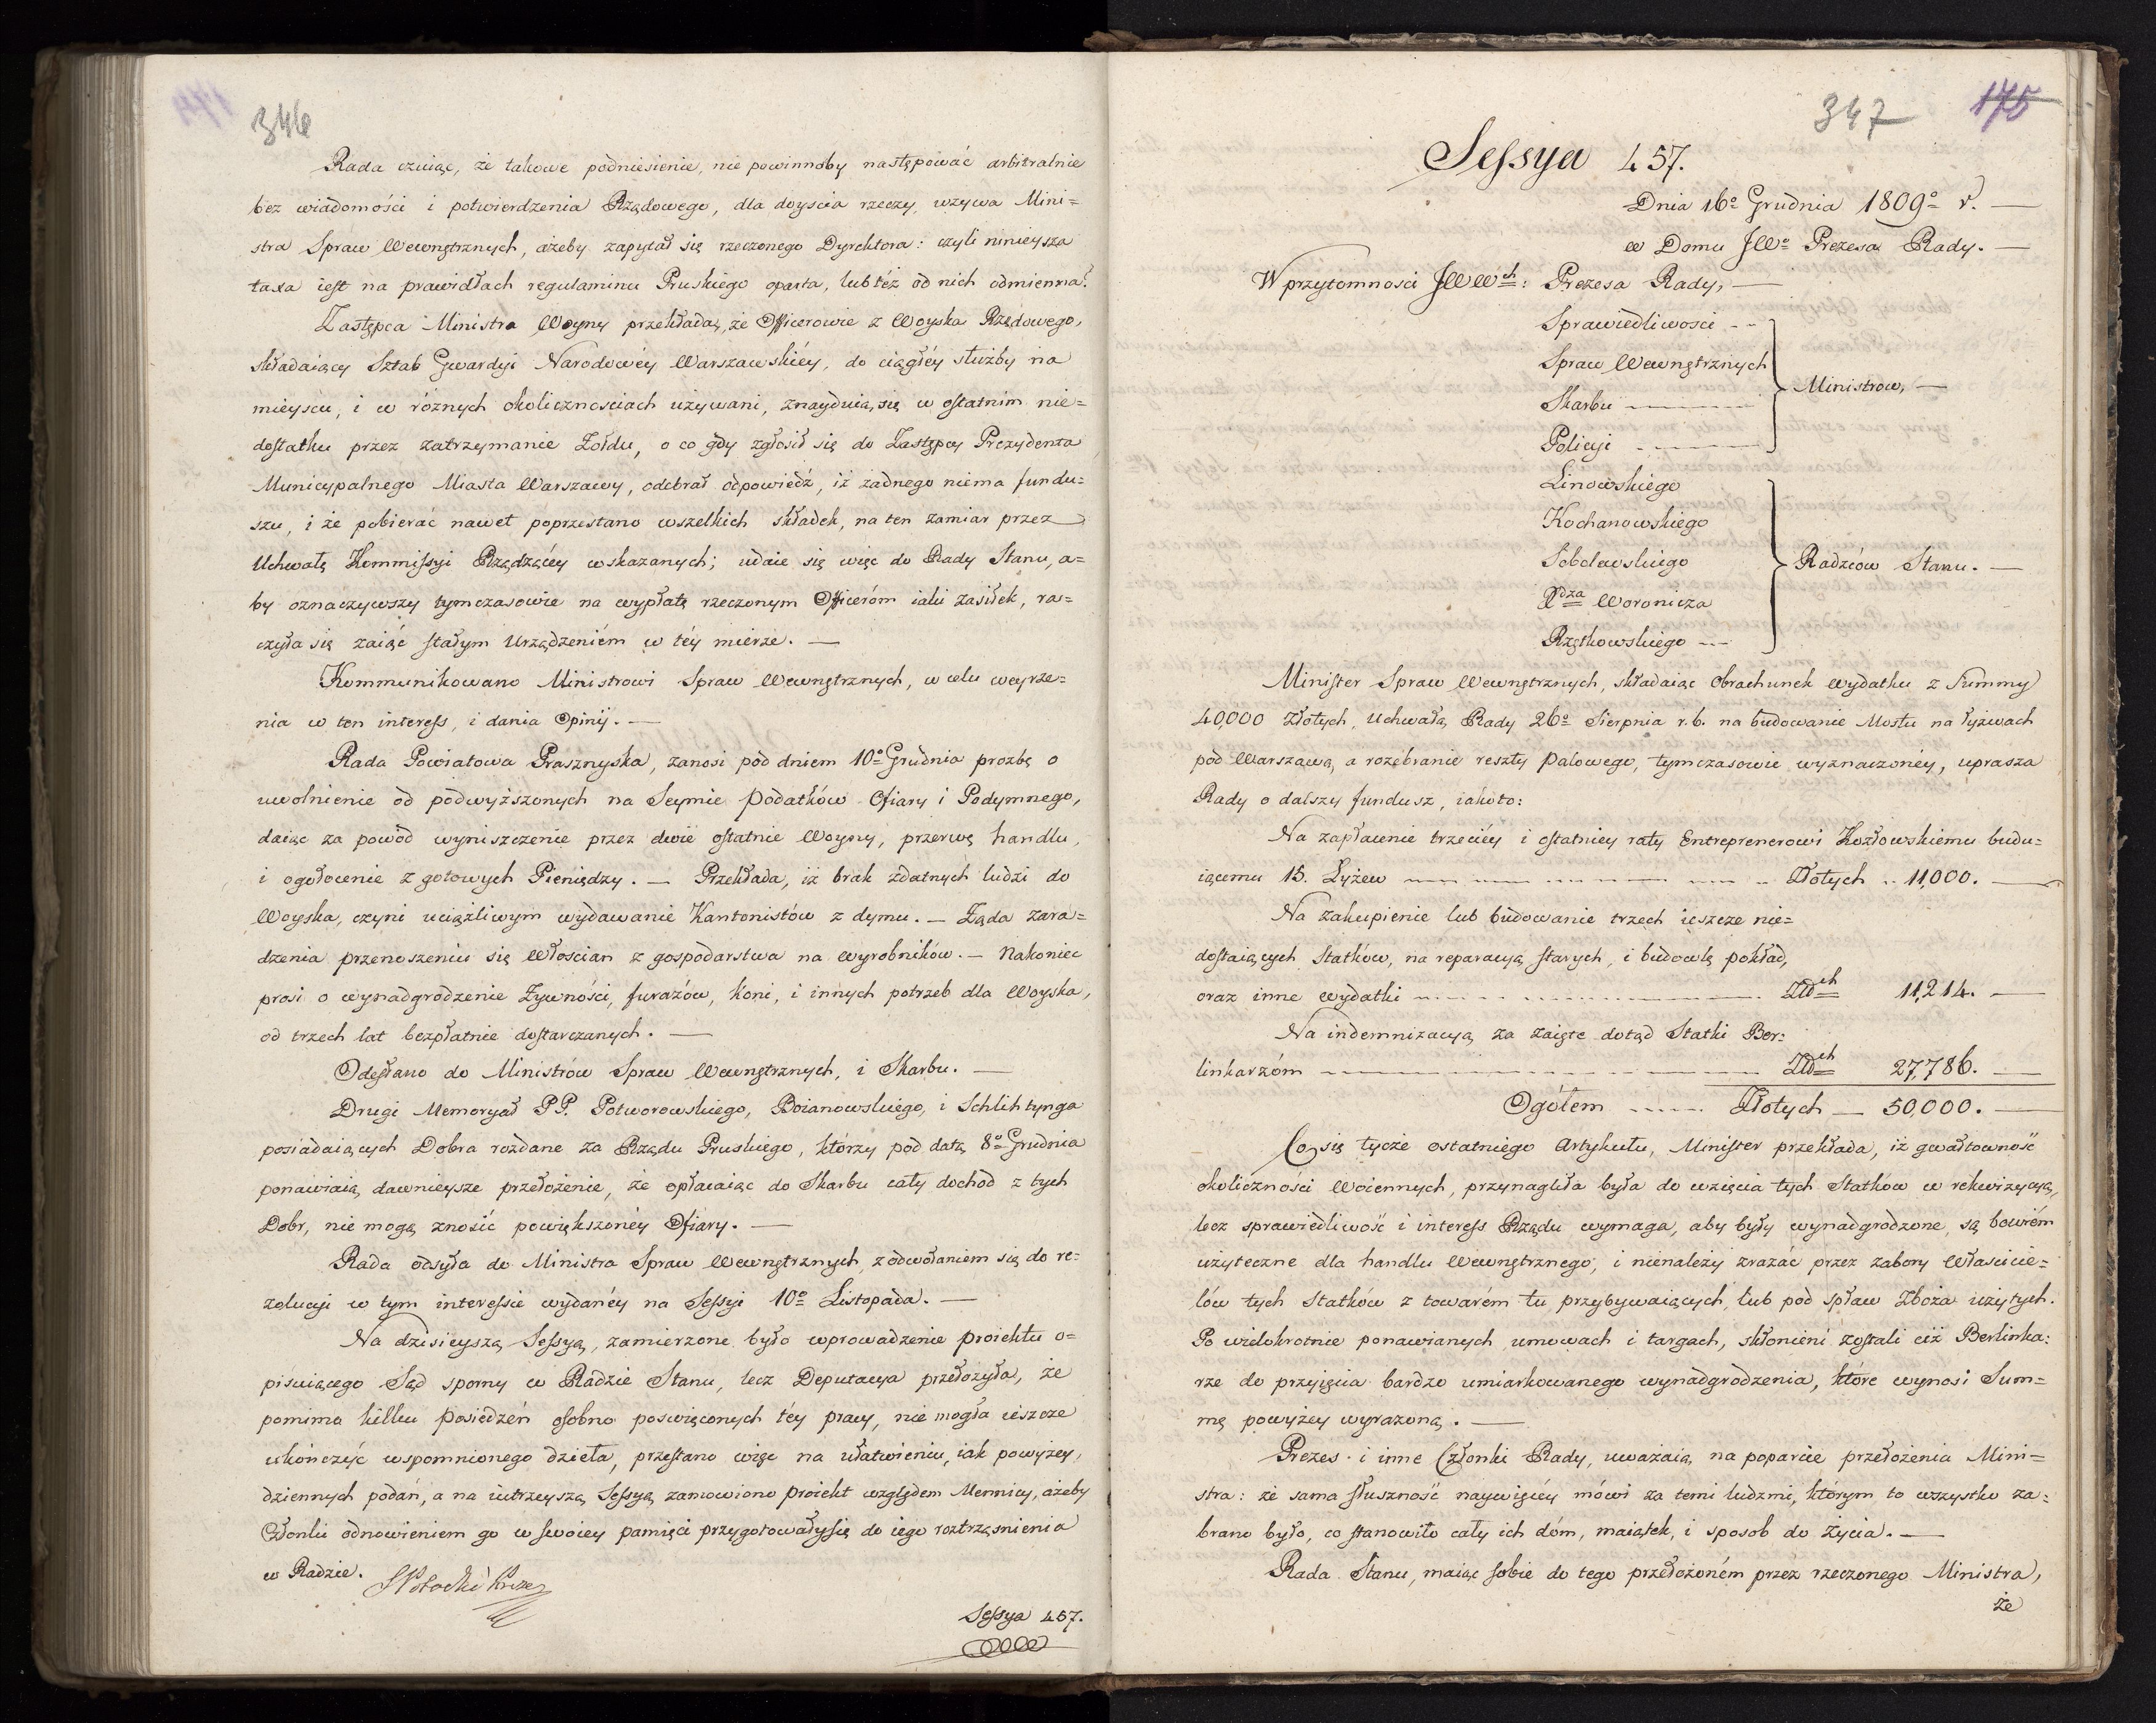 346
Rada czuiąc, że takowe podniesienie, nie powinnoby następować arbitralnie
bez wiadomości i potwierdzenia Rządowego, dla doyscia rzeczy, wzywa Mini=
stra Spraw Wewnętrznych, ażeby zapytał się rzeczonego Dyrektora: czyli ninieysza
taxa iest na prawidłach regulaminu Pruskiego oparta, lub téż od nich odmienna?
Zastępca Ministra Woyny przekłada, że Officerowie z Woyska Rządowego,
składaiący Sztab Gwardyi Narodowéy Warszawskiéy, do ciągłéy służby na
mieyscu, i w róznych okolicznosciach używani, znayduią się w ostatnim nie=
dostatku przez zatrzymanie Żołdu, o co gdy zgłosił się do Zastępcy Prezydenta
Municypalnego Miasta Warszawy, odebrał odpowiedź, iż żadnego niema fundu=
szu, i że pobierać nawet poprzestano wszelkich składek, na ten zamiar przez
Uchwałę Kommissyi Rządzącéy wskazanych; udaie się więc do Rady Stanu, a=
by oznaczywszy tymczasowie na wypłatę rzeczonym Officeróm iaki zasiłek, ra=
czyła się zaiąć stałym Urządzeniém w téy mierze. —
Kommunikowano Ministrowi Spraw Wewnętrznych, w celu weyrze=
nia w ten interess, i dania Opinij. —
Rada Powiatowa Prasznyska, zanosi pod dniem 10º Grudnia prozbę o
uwolnienie od podwyższonych na Seymie Podatków Ofiary i Podymnego,
daiąc za powód wyniszczenie przez dwie ostatnie Woyny, przerwę handlu,
i ogołocenie z gotowych Pieniędzy. — Przekłada, iż brak zdatnych ludzi do
Woyska, czyni uciążliwym wydawanie Kantonistów z dymu. — Żąda zara=
dzenia przenoszeniu się Włoscian z gospodarstwa na wyrobników. — Nakoniec
prosi o wynadgrodzenie Żywności, furażów, koni, i innych potrzeb dla Woyska,
od trzech lat bezpłatnie dostarczanych. —
Odesłano do Ministrów Spraw Wewnętrznych, i Skarbu. —
Drugi Memoryał PP. Potworowskiego, Boianowskiego, i Schlihtynga
posiadaiących Dobra rozdane za Rządu Pruskiego, którzy pod datą 8º Grudnia
ponawiaią dawnieysze przełożenie, że opłacaiąc do Skarbu cały dochód z tych
Dobr, nie mogą znosić powiększonéy Ofiary. —
Rada odsyła do Ministra Spraw Wewnętrznych, z odwołaniem się do re=
zolucyi w tym interessie wydanéy na Sessyi 10º Listopada. —
Na dzisieyszą Sessyą, zamierzone było wprowadzenie proiektu o=
pisuiącego Sąd sporny w Radzie Stanu, lecz Deputacya przełożyła, że
pomimo kilku posiedzeń osobno poswięconych téy pracy, nie mogła ieszcze
ukończyć wspomnionego dzieła, przestano więc na ułatwieniu, iak powyżey,
dziennych podań, a na iutrzeyszą Sessyą zamowiono proiekt względem Mennicy, ażeby
Członki odnowieniem go w swoiey pamięci przygotowały się do iego roztrząsnienia
w Radzie. SPotocki Prez
Sessya 457.
347 175
Sessya 457.
Dnia 16º Grudnia 1809º r. —
w Domu JWº Prezesa Rady. —
W przytomnosci JWWch: Prezesa Rady, —
Sprawiedliwosci
Spraw Wewnętrznych
Skarbu
Ministrow, —
Policyi
Linowskiego
Kochanowskiego
Sobolewskiego
Radzców Stanu. —
Xdza Woronicza
Rzętkowskiego
Minister Spraw Wewnętrznych, składaiąc Obrachunek wydatku z Summy
40,000 Złotych, Uchwałą Rady 26º Sierpnia r. b. na budowanie Mostu na łyżwach
pod Warszawą, a rozébranie reszty Palowego, tymczasowie wyznaczonéy, uprasza
Rady o dalszy fundusz, iakoto:
Na zapłacenie trzeciéy i ostatniey raty Entreprenerowi Kozłowskiemu budu=
iącemu 15. Łyżew Złotych 11,000. —
Na zakupienie lub budowanie trzech ieszcze nie=
dostaiących Statków, na reparacyą starych, i budowlę pokład,
oraz inne wydatki Złłch 11,214. —
Na indemnizacyą za zaięte dotąd Statki Ber:
linkarzóm Złłch 27,786. —
Ogółem Złotych — 50,000. —
Co się tycze ostatniego Artykułu, Minister przekłada, iż gwałtowność
okoliczności Woiennych, przynagliła była do wzięcia tych Statków w rekwizycyą,
lecz sprawiedliwość i interess Rządu wymaga, aby były wynadgrodzone, są bowiém
użyteczne dla handlu Wewnętrznego, i nienależy zrażać przez zabory Właścicie=
lów tych Statków z towarém tu przybywaiących, lub pod spław Zboża użytych.
Po wielokrotnie ponawianych umowach i targach, skłonieni zostali ciż Berlinka:
rze do przyięcia bardzo umiarkowanego wynadgrodzenia, które wynosi Sum=
mę powyżey wyrażoną. —
Prezes i inne Członki Rady, uważaią na poparcie przełożenia Mini=
stra: że sama słuszność naywięcéy mówi za temi ludzmi, którym to wszystko za=
brano było, co stanowiło cały ich dóm, maiątek, i sposob do życia. —
Rada Stanu, maiąc sobie do tego przełożoném przez rzeczonego Ministra,
że